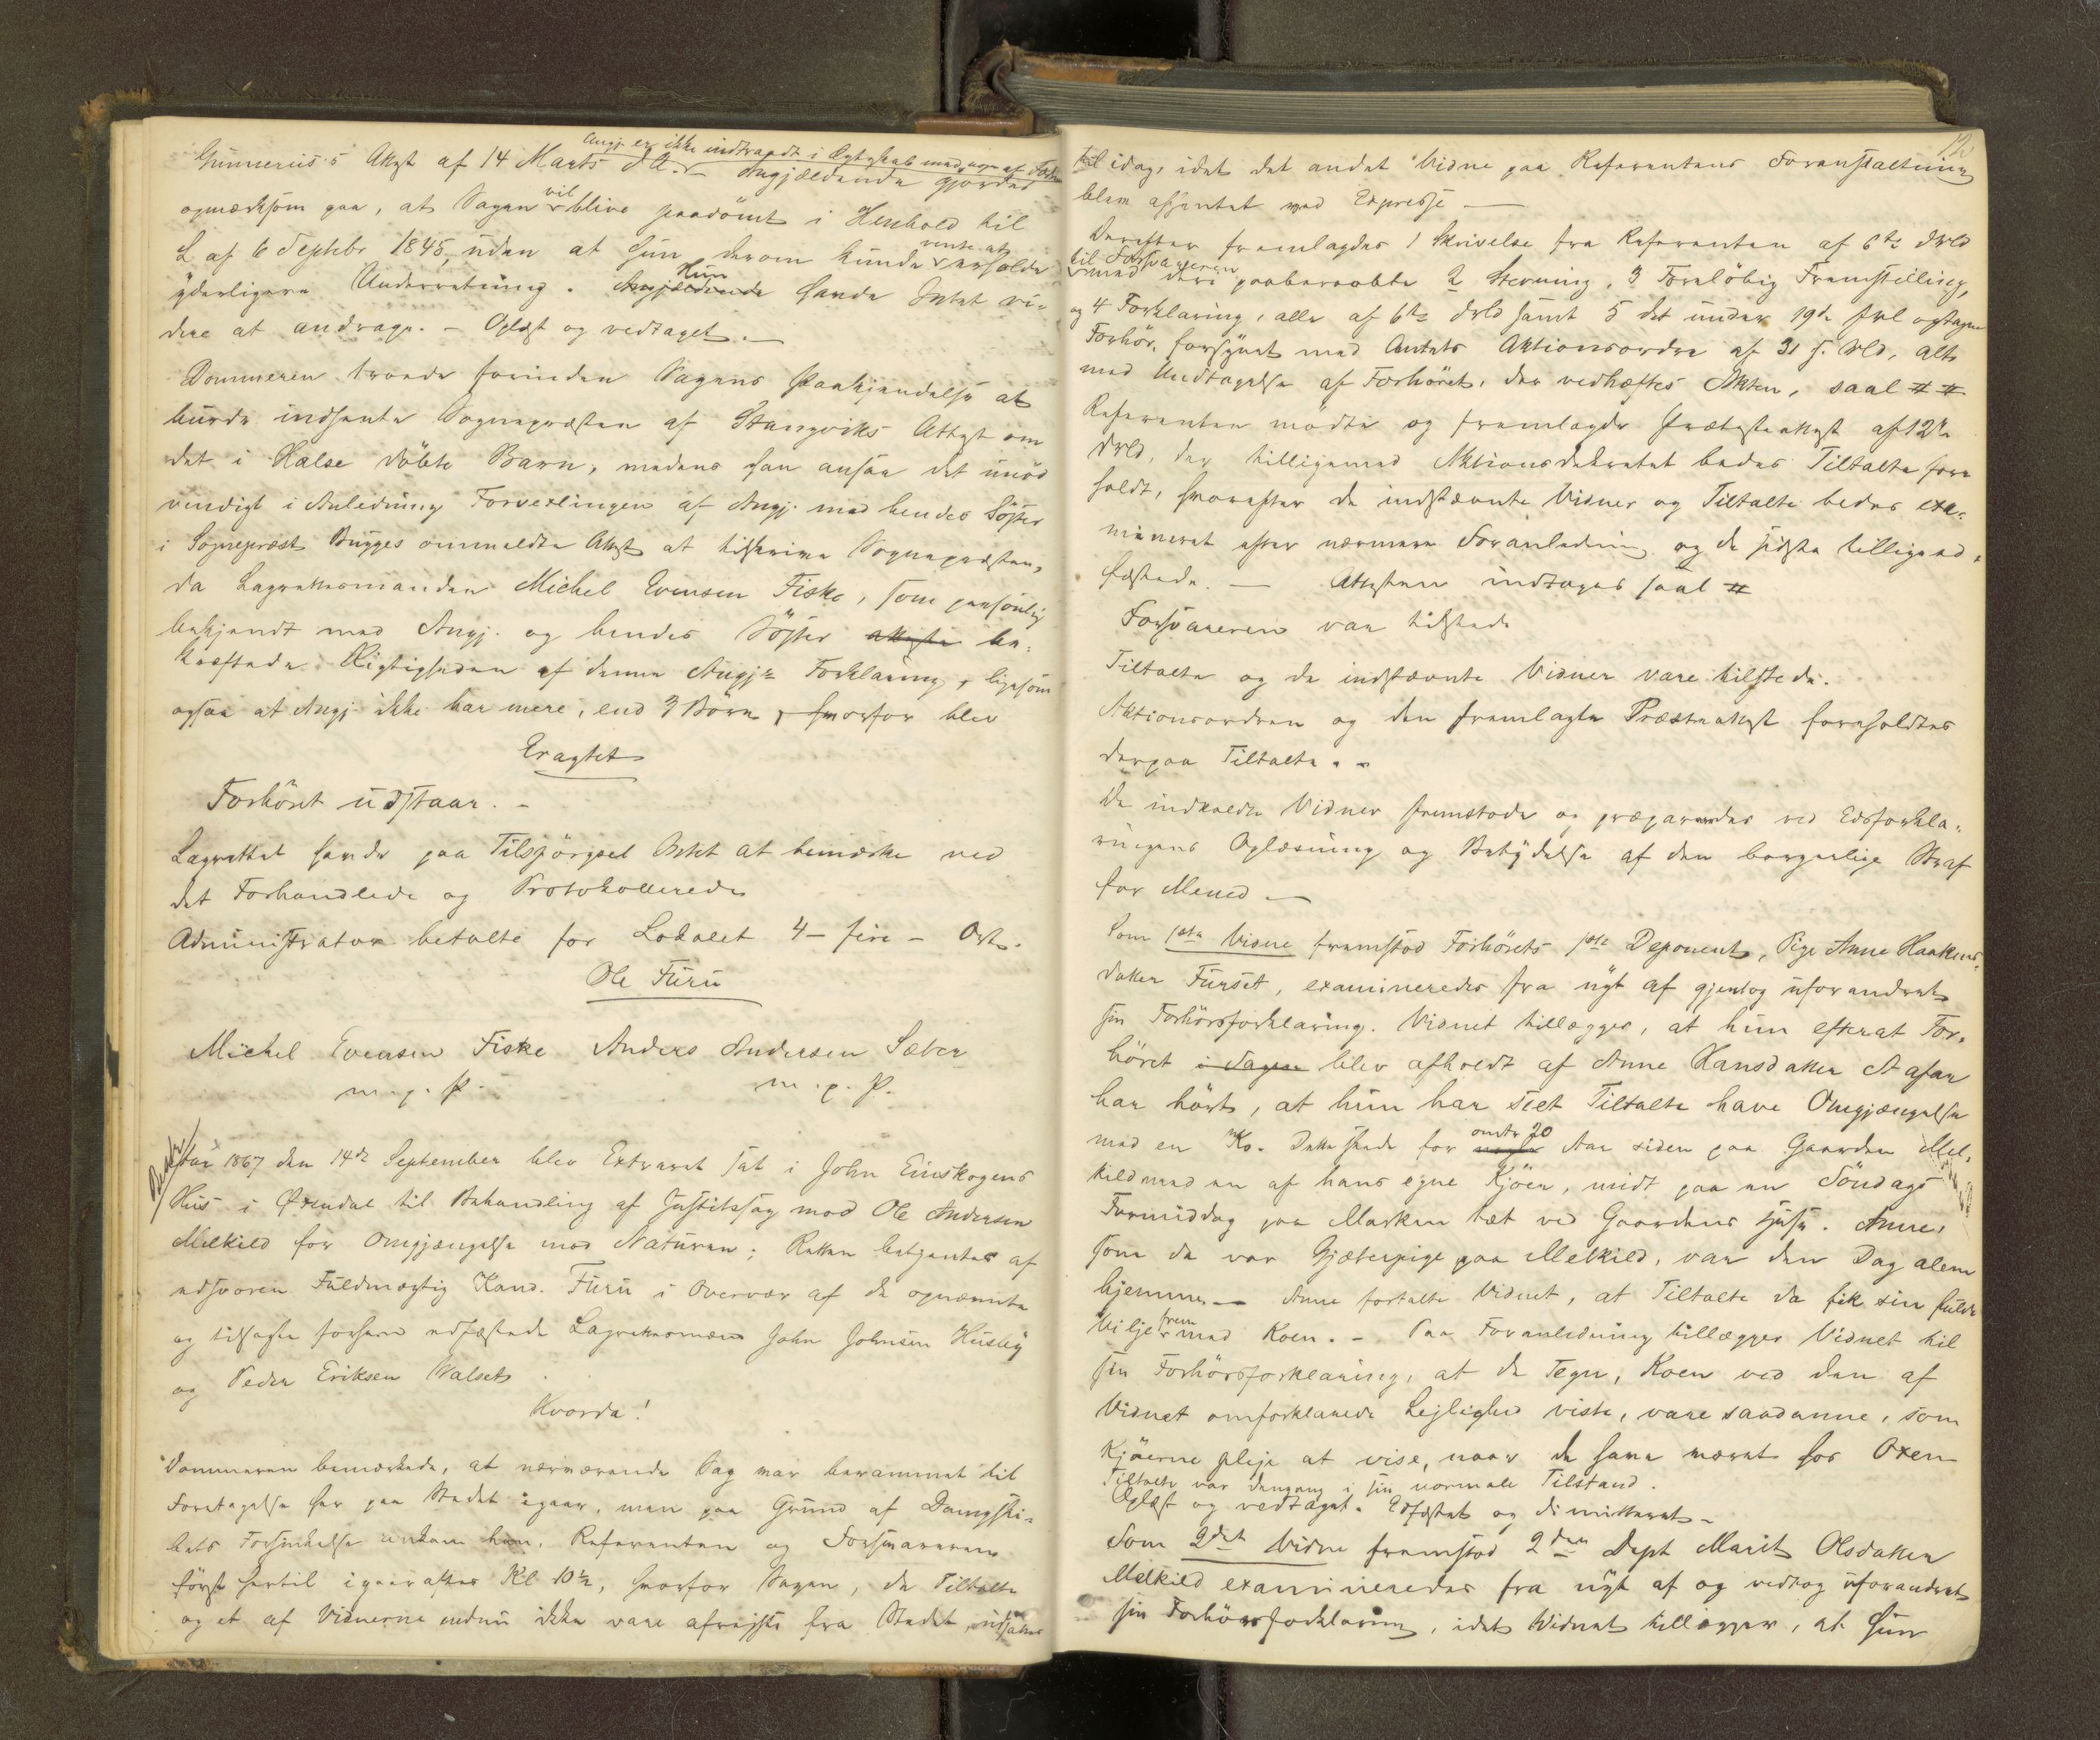 Angj. er ikke indtraadt i Ægteskab med nogen af Fædr
Gunnerius's Attest af 14 Marts d. A. Angjældende gjordes
opmærksom paa, at Sagen vil blive paadömt i Henhold til
L af 6 Septbr 1845, uden at hun derom kunde vente at erholde
yderligere Underretning. Angjældende Hun havde Intet vi-
dere at andrage. - Oplæst og vedtaget. -
Dommeren troede forinden Sagens Paakjendelse at
burde indhente Sognepræsten af Stangviks Attest om
det i Halse döbte Barn, medens han ansaa det unöd
vendigt i Anledning Forvexlingen af Angj. med hendes Söster
i Sognepræst Bugges ommeldte Attest at tilskrive Sognepræsten,
da Lagrettesmanden Michel Evensen Fiske, som personlig
bekjendt med Angj. og hendes Söster attester be-
kræftede Rigtigheden af denne Angj's Forklaring, ligesom
ogsaa at Angj. ikke har mere, end 3 Börn, hvorfor blev
Eragtet
Forhöret udstaar. -
Lagrettet havde paa Tilspörgsel Intet at bemærke ved
det Forhandlede og Protokollerede
Administrator betalte for Lokalet 4 - fire - Ort.
Ole Furu
Michel Evensen Fiske Anders Andersen Sæter
m. p. P. m. p. P.
Aar 1867 den 14de September blev Extraret sat i John Einskogens
Hus i Øxendal til Behandling af Justitssag mod Ole Andersen
Melkild for Omgjængelse mod Naturen; Retten betjentes af
edsvoren Fuldmægtig Kand. Furu i Overvær af de opnævnte
og tilsagte forhen edfæstede Lagrettesmænd John Johnsen Husby
og Peder Eriksen Walset
Hvorda!
Dommeren bemærkede, at nærværende Sag var berammet til
Foretagelse her paa Stedet igaar, men paa Grund af Dampski-
bets Forsinkelse ankom han, Referenten og Forsvareren
först hertil igaar aftes Kl 10½, hvorfor Sagen, da Tiltalte
og et af Vidnerne endnu ikke vare afreiste fra Stedet, udsattes
til idag, idet det andet Vidne paa Referentens Foranstaltning
blev afhentet med Expresse -
Derefter fremlagdes 1 Skrivelse fra Referenten af 6te dsld
til Forsvareren med deri paaberaabte 2 Stevning, 3 Foreløbig Fremstilling,
og 4 Forklaring, alle af 6te dsld samt 5 det under 19de Juli optagne
Forhör, forsynet med Amtets Aktionsordre af 31 f. Md., alt
med Undtagelse af Forhöret, der vedhæftes Akten, saal # #
Referenten mödte og fremlagde Præsteattest af 12te
dsld, der tilligemed Aktionsdekretet bedes Tiltalte fore
holdt, hvorefter de indstævnte Vidner og Tiltalte bedes exa-
mineret efter nærmere Foranledning og de förste tillige ed-
fæstede. - Attesten indtages saal #
Forsvareren var tilstede
Tiltalte og de indstævnte Vidner vare tilstede.
Aktionsordren og den fremlagte Præsteattest foreholdtes
derpaa Tiltalte. -
De indkaldte Vidner fremstode og præpareredes ved Edsforkla-
ringens Oplæsning og Betydelse af den borgerlige Straf
for Mened -
Som 1ste Vidne fremstod Forhörets 1ste Deponent, Pige Anne Haakens-
datter Furset, examineredes fra nyt af gjentog uforandret
sin Forhörsforklaring. Vidnet tillægger, at hun efterat For-
höret i Sagen blev afholdt af Anne Hansdatter
har hört, at hun har seet Tiltalte have Omgjængelse
med en Ko. Dette skede for omtr 20 Aar siden paa Gaarden Mel-
kild med en af hans egne Kjöer, midt paa en Söndags
Formiddag paa Marken tæt ved Gaardens Huse. Anne,
som da var Gjæterpige paa Melkild, var den Dag alene
hjemme. - Anne fortalte Vidnet, at Tiltalte da fik sin fulde
Vilje frem med Koen. - Paa Foranledning tillægger Vidnet til
sin Forhörsforklaring, at de Tegn, Koen ved den af
Vidnet omforklarede Leilighed viste, vare saadanne, som
Kjöerne pleje at vise, naar de have været hos Oxen
Tiltalte var dengang i sin normale Tilstand.
Oplæst og vedtaget. Edfæstet og dimitteret -
Som 2det Vidne fremstod 2den Dept Marit Olsdatter
Melkild examineredes fra nyt af og vedtog uforandret
sin Forhörsforklaring, idet Vidnet tillægger, at hun